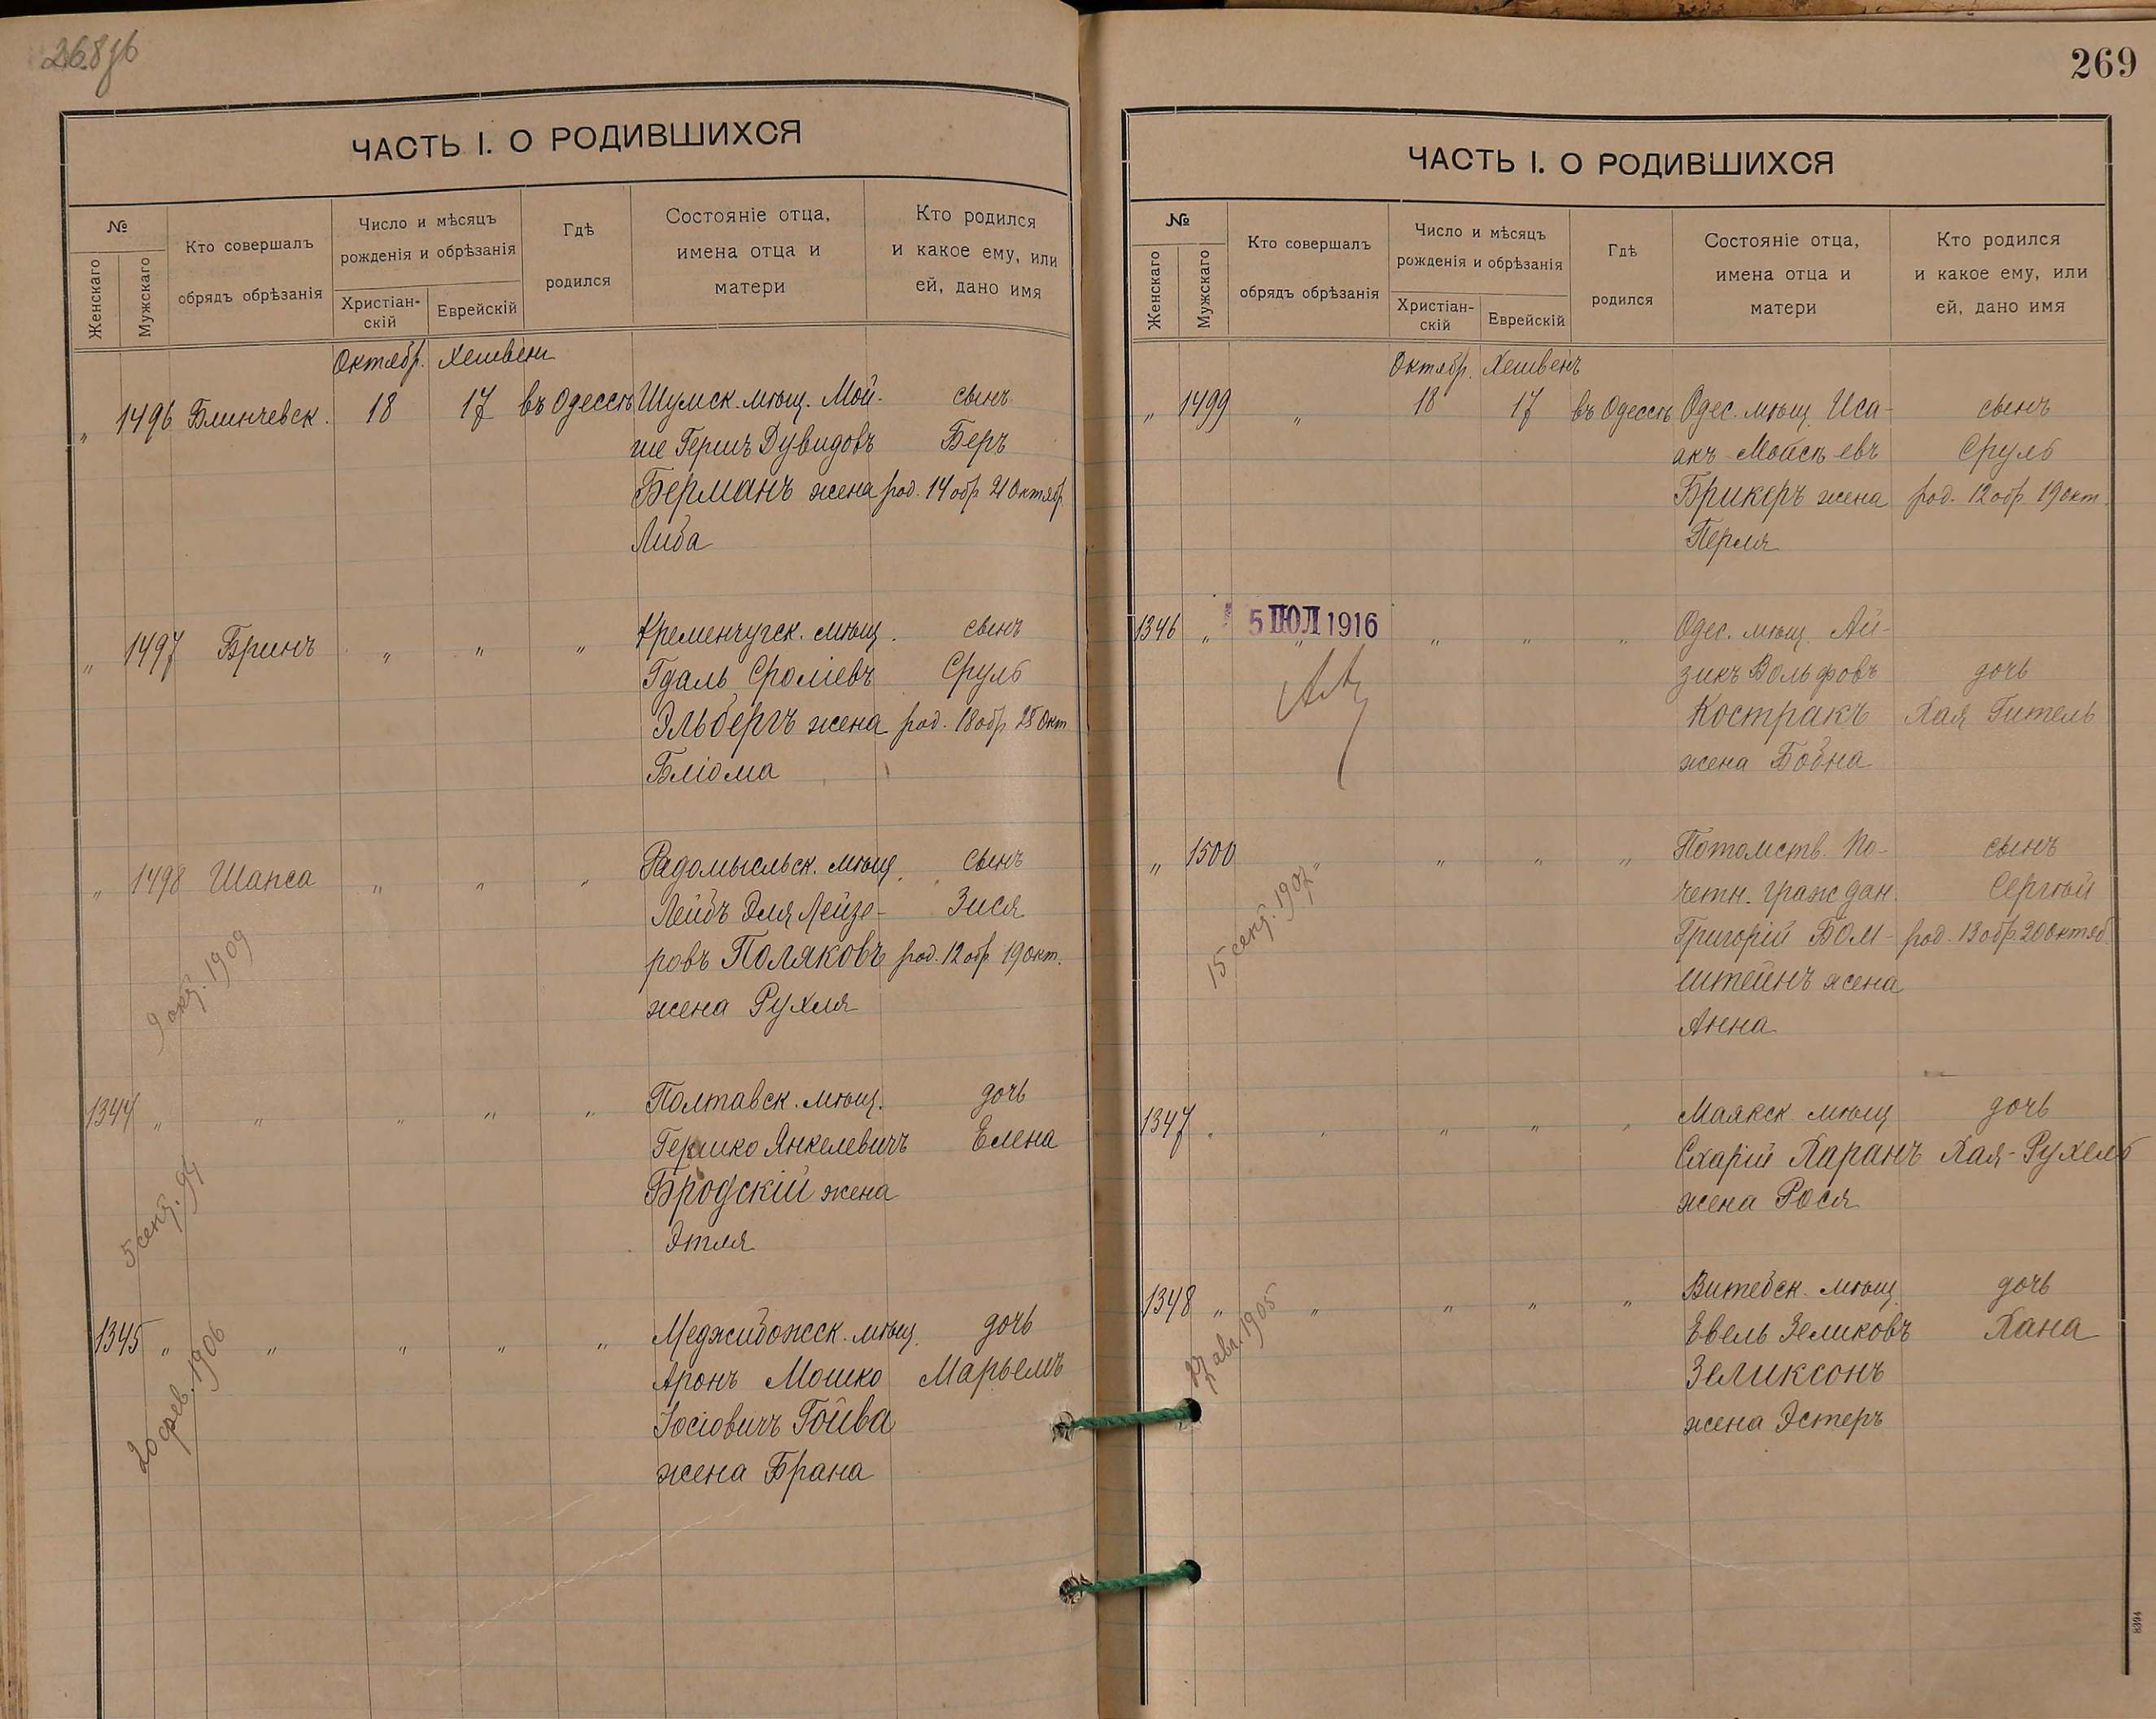 268 об
ЧАСТЬ I. О РОДИВШИХСЯ
№
Женскаго
Мужскаго
Кто совершалъ
обрядъ обрѣзанія
Число и мѣсяцъ
рожденія и обрѣзанія
Христіан-
скій
Еврейскій
Гдѣ
родился
Состояніе отца,
имена отца и
матери
Кто родился
и какое ему, или
ей, дано имя
Октябр. Хешвенъ
" 1496 Блинчевск. 18 17 въ Одессѣ Шумск. мѣщ. Мой- сынъ
ше Гершъ Дувидовъ Беръ
Берманъ жена род. 14 обр 21 Октябр.
Либа
" 1497 Бринъ " " " Кременчугск. мѣщ. сынъ
Гдаль Сроліевъ Сруль
Эльбергъ жена род. 18 обр 25 Окт.
Бліома
" 1498 Шапса " " " Радомысльск. мѣщ. сынъ
Лейбъ Эля Лейзе- Зися
ровъ Поляковъ род. 12 обр 19 окт.
жена Рухля
9 окт. 1909
1344 " " " " " Полтавск. мѣщ. дочь
Гершко Янкелевичъ Елена
Бродскій жена
Этля
5 сент. 94
1345 " " " " " Меджибожск. мѣщ. дочь
Аронъ Мошко Марьемъ
Іосіовичъ Гойва
жена Брана
20 фев. 1906
269
ЧАСТЬ I. О РОДИВШИХСЯ
№
Женскаго
Мужскаго
Кто совершалъ
обрядъ обрѣзанія
Число и мѣсяцъ
рожденія и обрѣзанія
Христіан-
скій
Еврейскій
Гдѣ
родился
Состояніе отца,
имена отца и
матери
Кто родился
и какое ему, или
ей, дано имя
Октябр. Хешвенъ
" 1499 " 18 17 въ Одессѣ Одес. мѣщ. Иса- сынъ
акъ Мойсѣевъ Сруль
Брикеръ жена род. 12 обр 19 окт.
Перля
1346 " 5 ІЮЛ 1916 " " " Одес. мѣщ. Ай-
зикъ Вольфовъ дочь
Костракъ Хая Гитель
жена Бобна
" 1500 " " " " Потомств. По- сынъ
четн. граждан. Сергѣй
Григорій Бом- род. 13 обр. 20 октяб
штейнъ жена
Анна
15 сент. 1907
1347 " " " " " Маякск мѣщ дочь
Схарій Харанъ Хая-Рухель
жена Рося
1348 " " " " " Витебск. мѣщ. дочь
Евель Зеликовъ Хана
Зеликсонъ
жена Эстеръ
27 авг. 1905
8394